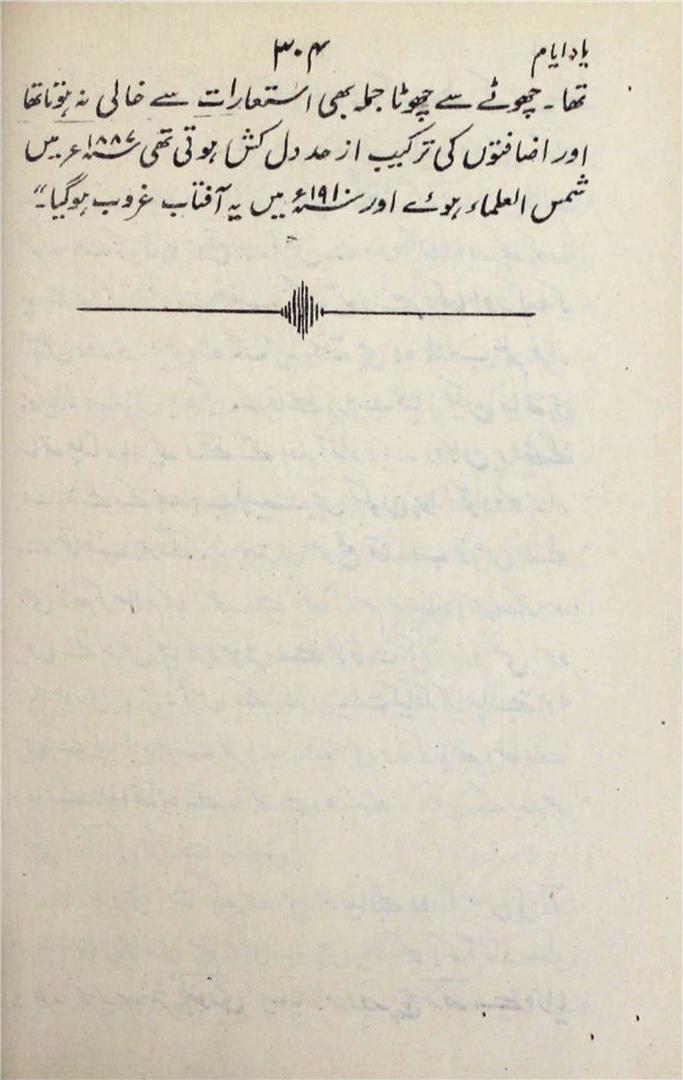 یاد ایام ۳۰۴
تھا۔ چھوٹے سے چھوٹا جملہ بھی استعارات سے خالی نہ ہوتا تھا
اور اضافتوں کی ترکیب از حد دل کش ہوتی تھی ۱۸۸۷ء میں
شمس العلماء ہوئے اور ۱۹۱۰ء میں یہ آفتاب غروب ہوگیا۔"